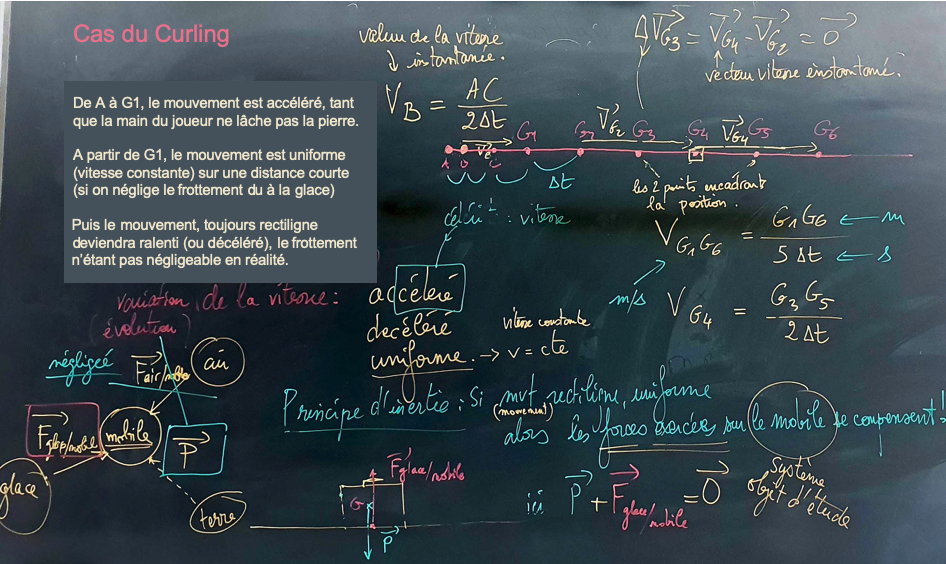 Cas du Curling
De A à G1, le mouvement est accéléré, tant
que la main du joueur ne lâche pas la pierre.
A partir de G1, le mouvement est uniforme
(vitesse constante) sur une distance courte
(si on néglige le frottement du à la glace)
Puis le mouvement, toujours rectiligne
deviendra ralenti (ou décéléré), le frottement
n'étant pas négligeable en réalité.
valeur de la vitesse
↓ instantanée.
V_B = AC / 2Δt
ΔV⃗_G3 = V⃗_G4 - V⃗_G2 = 0⃗
vecteur vitesse instantané.
A B C G1 G2 V⃗_G2 G3 G4 V⃗_G4 G5 G6
Δt
les 2 points encadrants
la position.
: vitesse
V_G1G6 = G1G6 / 5 Δt ← m ← s
m/s
V_G4 = G3G5 / 2Δt
variation de la vitesse :
(évolution)
accéléré
decéléré
uniforme. → v = cte
vitesse constante
négligée
F⃗ air/mobile
air
F⃗ glace/mobile
mobile
P⃗
glace
terre
Principe d'inertie : Si mvt rectiligne, uniforme
(mouvement)
alors les forces exercées sur le mobile se compensent !
Système
objet d'étude
F⃗ glace/mobile
G
P⃗
ici P⃗ + F⃗ glace/mobile = 0⃗